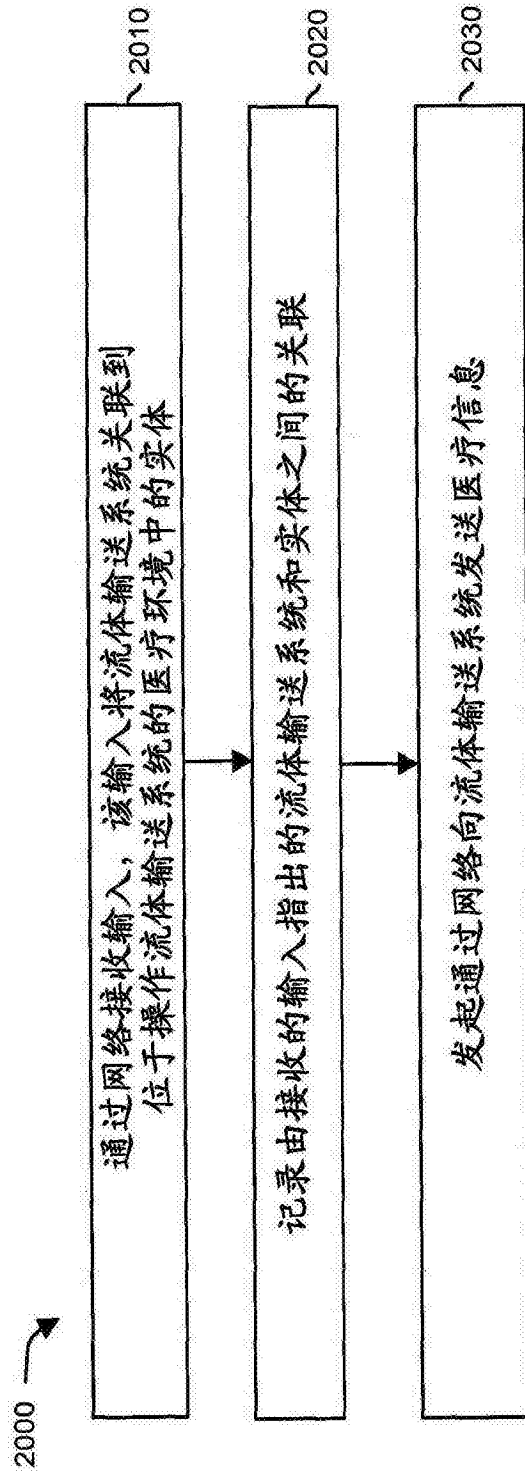 2000
通过网络接收输入，该输入将流体输送系统关联到
位于操作流体输送系统的医疗环境中的实体
2010
记录由接收的输入指出的流体输送系统和实体之间的关联
2020
发起通过网络向流体输送系统发送医疗信息
2030